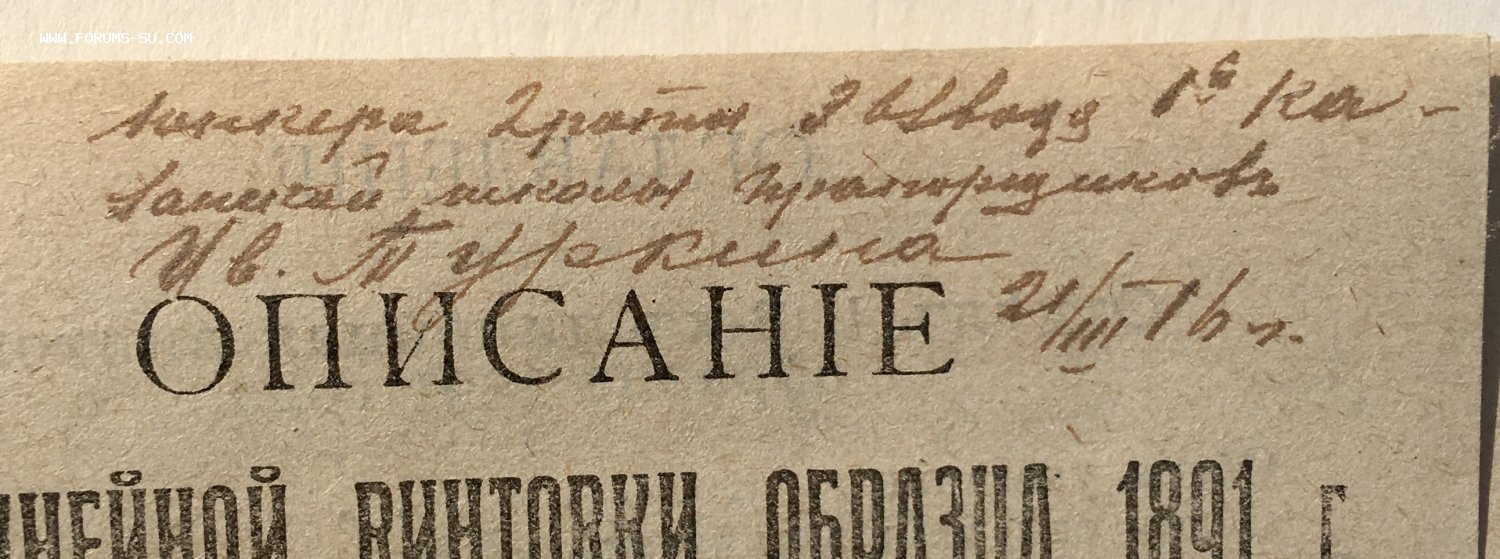 WWW.FORUMS-SU.COM
Юнкера 2 роты 3 взвода 1й Ка-
занской школы прапорщиковъ
Ив. Туркина
21/III 16 г.
ОПИСАНІЕ
ИНЕЙНОЙ ВИНТОВКИ ОБРАЗЦА 1891 г